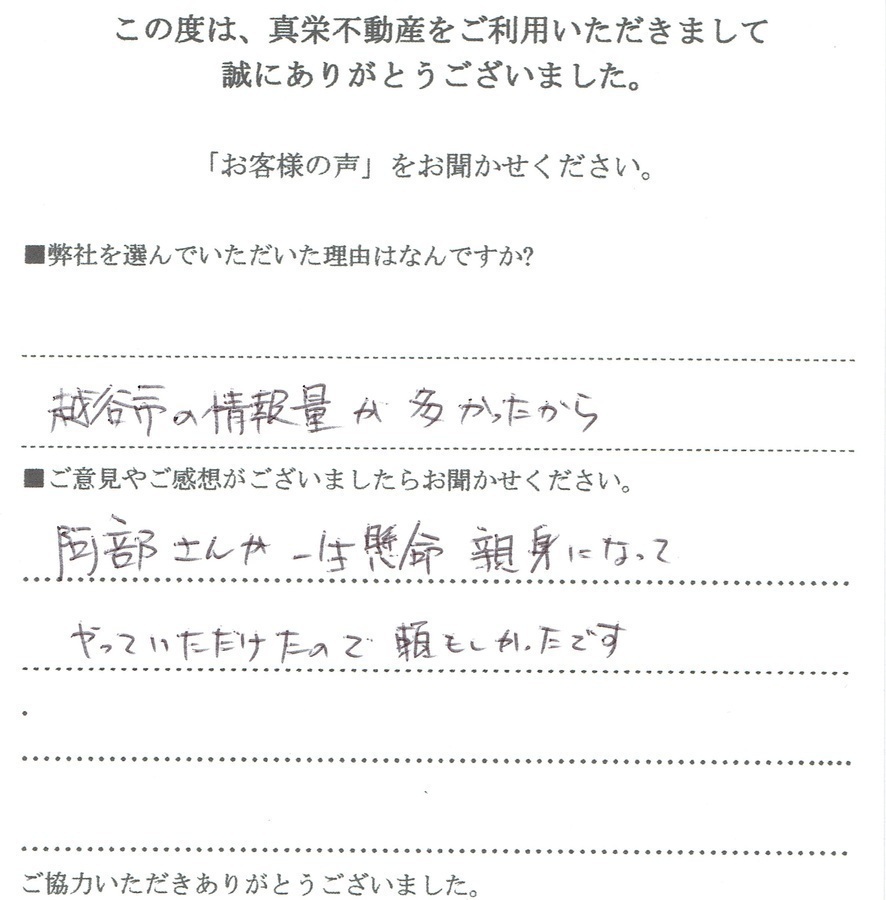 この度は、真栄不動産をご利用いただきまして
誠にありがとうございました。
「お客様の声」をお聞かせください。
■弊社を選んでいただいた理由はなんですか?
越谷市の情報量が多かったから
■ご意見やご感想がございましたらお聞かせください。
阿部さんが一生懸命親身になって
やっていただけたので頼もしかったです
ご協力いただきありがとうございました。